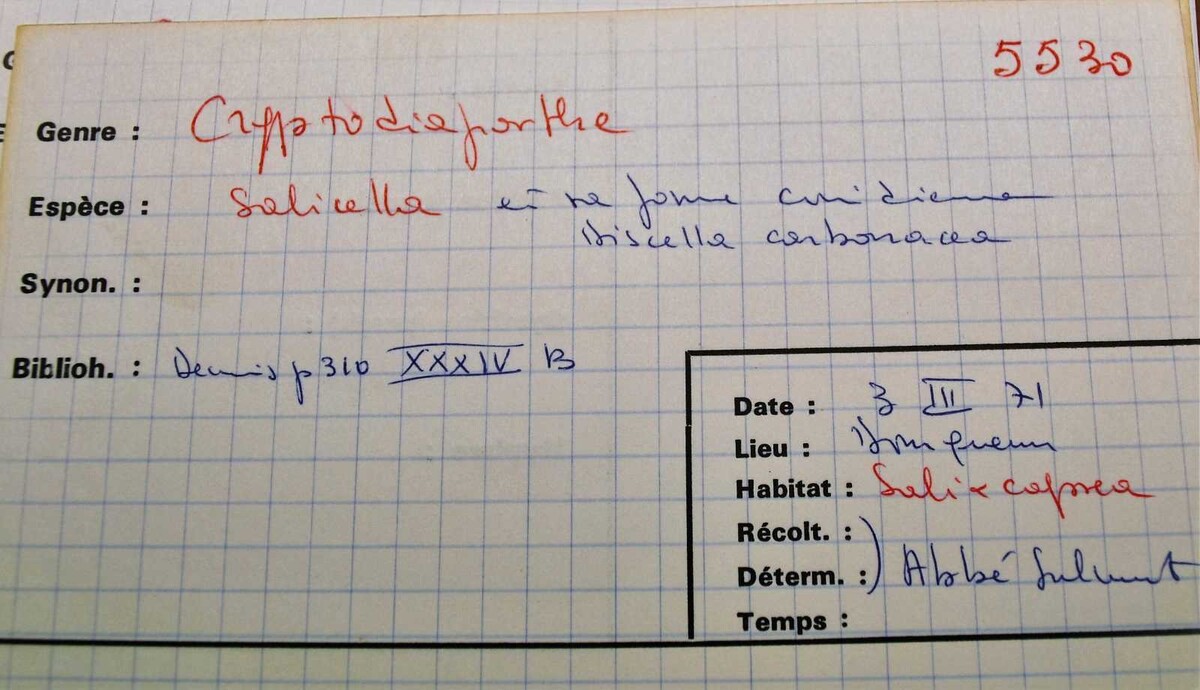 5530
Genre : Cryptodiaporthe
Espèce : Salicella et sa forme conidienne
Discella carbonacea
Synon. :
Biblioh. : Dennis p 310 XXXIV B
Date : 3 III 71
Lieu :
Habitat : Salix caprea
Récolt. :
Déterm. : Abbé
Temps :